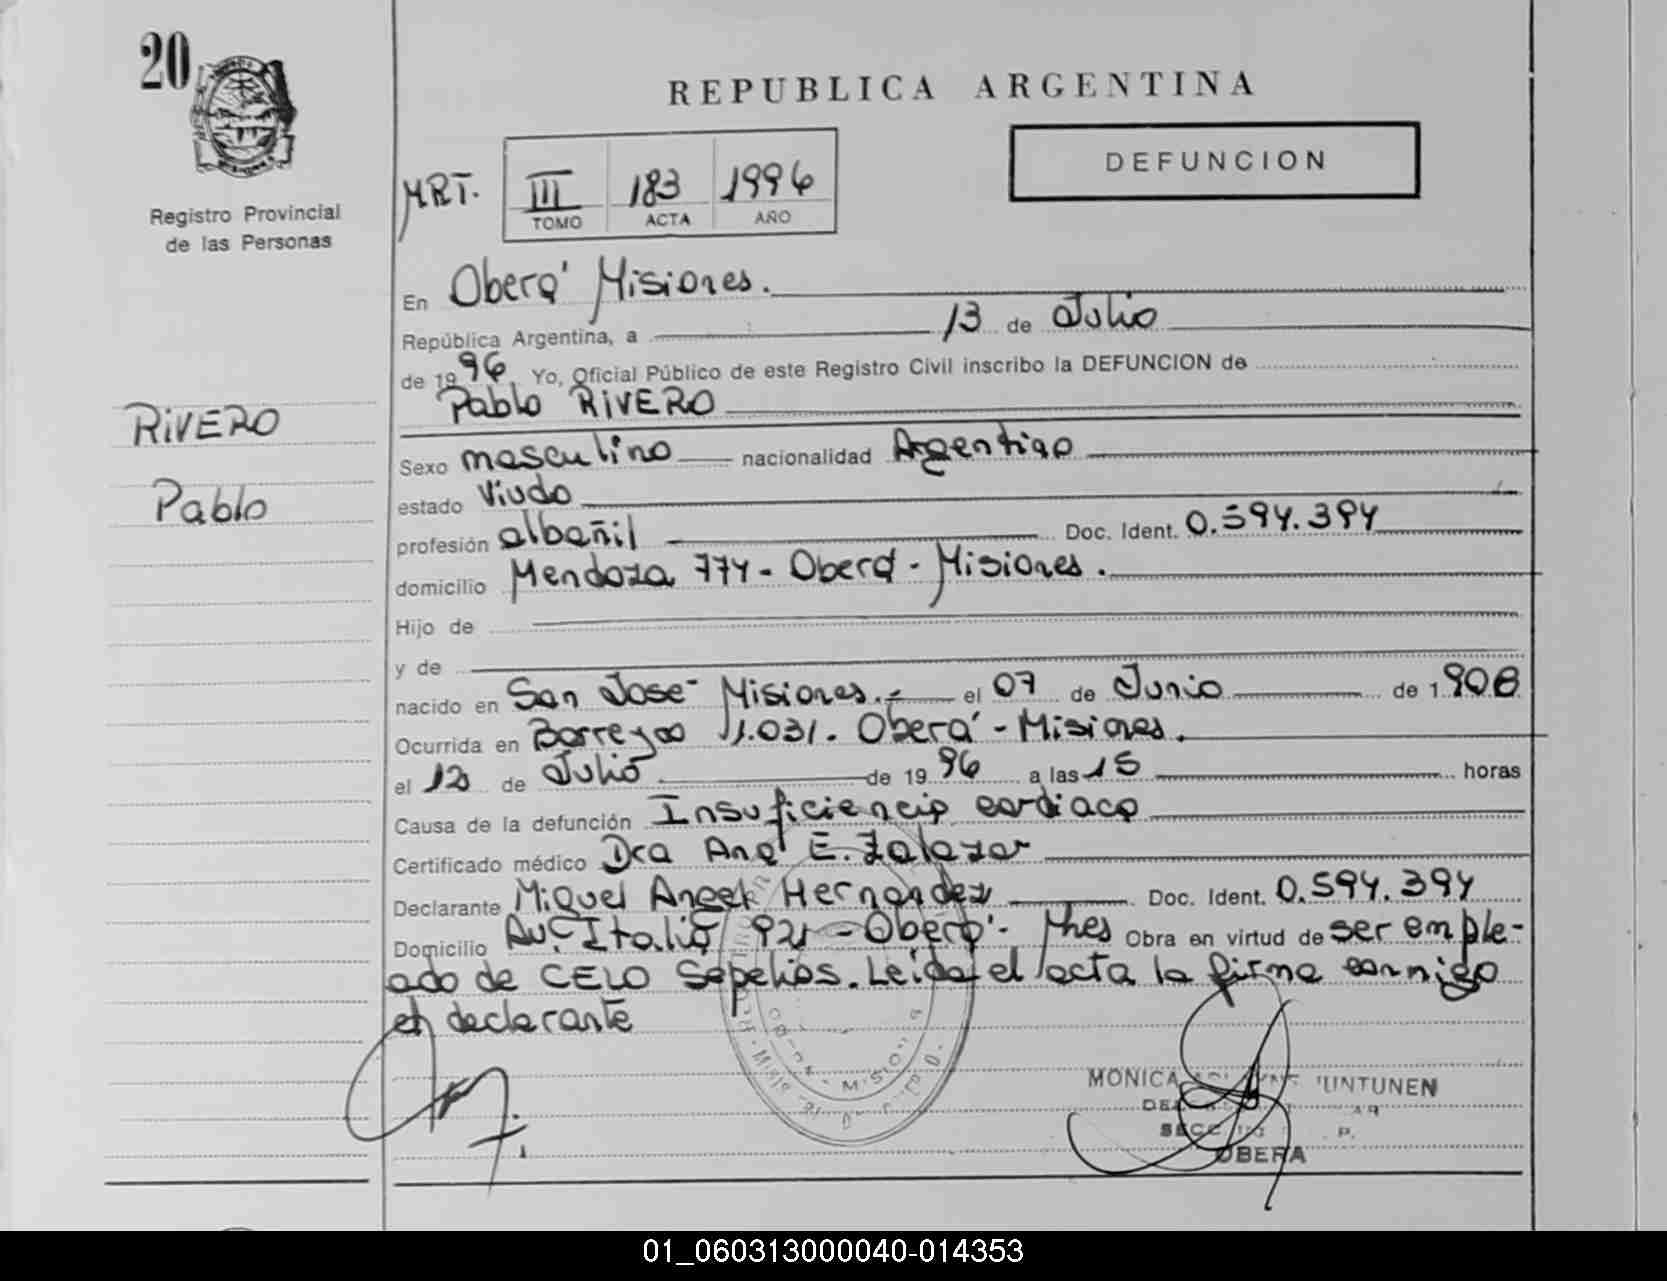 20
REPUBLICA ARGENTINA
DEFUNCION
MRT. III 183 1996
TOMO ACTA AÑO
Registro Provincial
de las Personas
En Oberá Misiones.
República Argentina, a 13 de Julio
de 1996 Yo, Oficial Público de este Registro Civil inscribo la DEFUNCION de
Pablo RIVERO
RIVERO
Pablo
Sexo masculino nacionalidad Argentino
estado Viudo
profesión albañil Doc. Ident. 0.594.394
domicilio Mendoza 774 - Oberá - Misiones.
Hijo de
y de
nacido en San José Misiones.- el 07 de Junio de 1908
Ocurrida en Barreyro 1.031. Oberá - Misiones.
el 12 de Julio de 1996 a las 15 horas
Causa de la defunción Insuficiencia cardiaca
Certificado médico Dra Ana E. Zalazar
Declarante Miguel Angel Hernandez Doc. Ident. 0.594.394
Domicilio Av. Italia 921 - Oberá - Mnes Obra en virtud de ser emple-
ado de CELO Sepelios. Leida el acta la firma conmigo
el declarante
MONICA UNTUNEN
OBERA
01_060313000040-014353